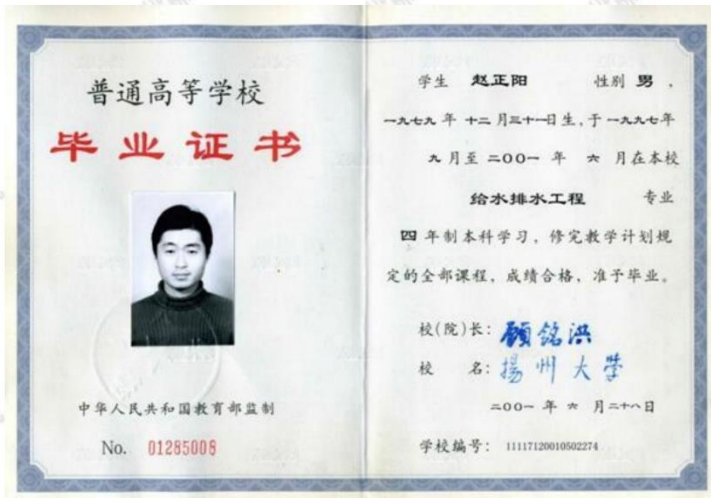 普通高等学校
毕业证书
中华人民共和国教育部监制
No. 01285008
学生 赵正阳 性别 男 ,
一九七九 年 十二 月三十一日生,于 一九九七年
九 月至 二00一 年 六 月在本校
给水排水工程 专业
四 年制本科学习，修完教学计划规
定的全部课程，成绩合格，准予毕业。
校(院)长: 顾铭洪
校 名: 揚州大学
二00一 年 六 月二十八日
学校编号: 11117120010502274